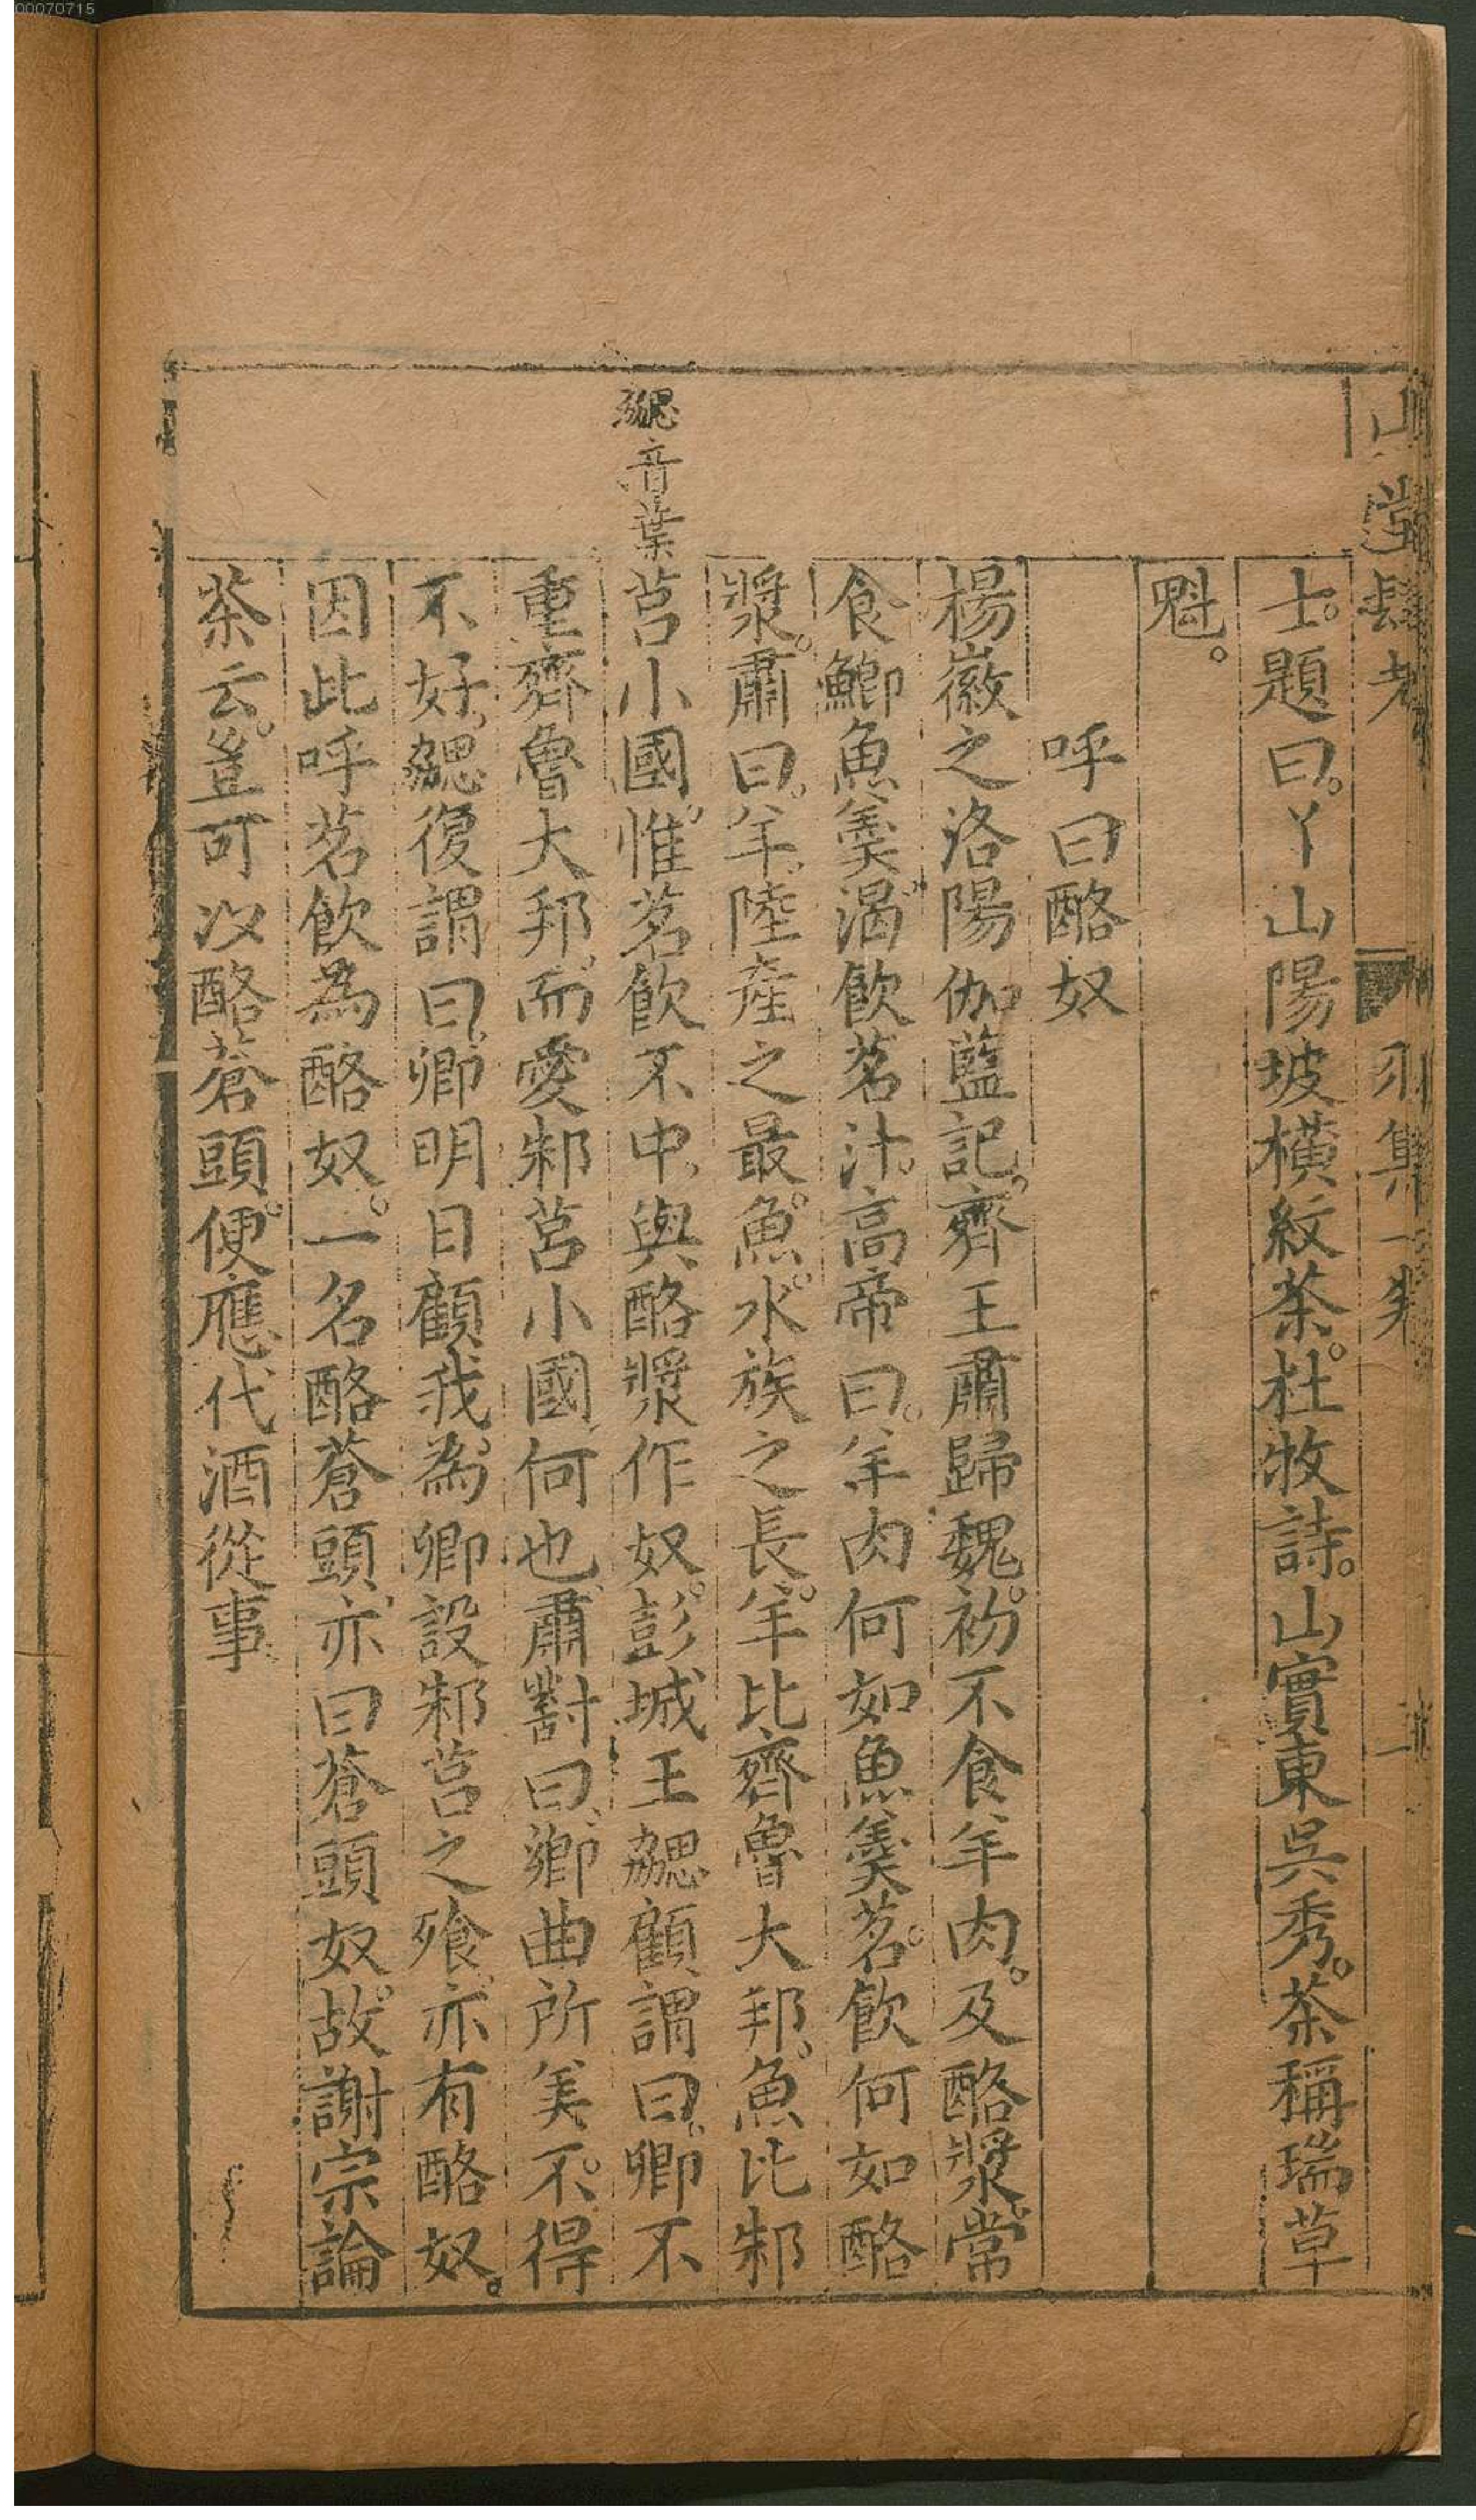 00070715
山堂肆考
羽集一卷
士題曰丫山陽坡橫紋茶杜牧詩山實東吳秀茶稱瑞草
魁
呼曰酪奴
楊衒之洛陽伽藍記齊王肅歸魏初不食羊肉及酪漿常
食鯽魚羹渴飲茗汁高帝曰羊肉何如魚羹茗飲何如酪
漿肅曰羊陸產之最魚水族之長羊比齊魯大邦魚比邾
莒小國惟茗飲不中與酪漿作奴彭城王勰顧謂曰卿不
重齊魯大邦而愛邾莒小國何也肅對曰鄉曲所美不得
不好勰復謂曰卿明日顧我為卿設邾莒之飱亦有酪奴
因此呼茗飲為酪奴一名酪蒼頭亦曰蒼頭奴故謝宗論
茶云豈可以酪蒼頭便應代酒從事
勰音葉